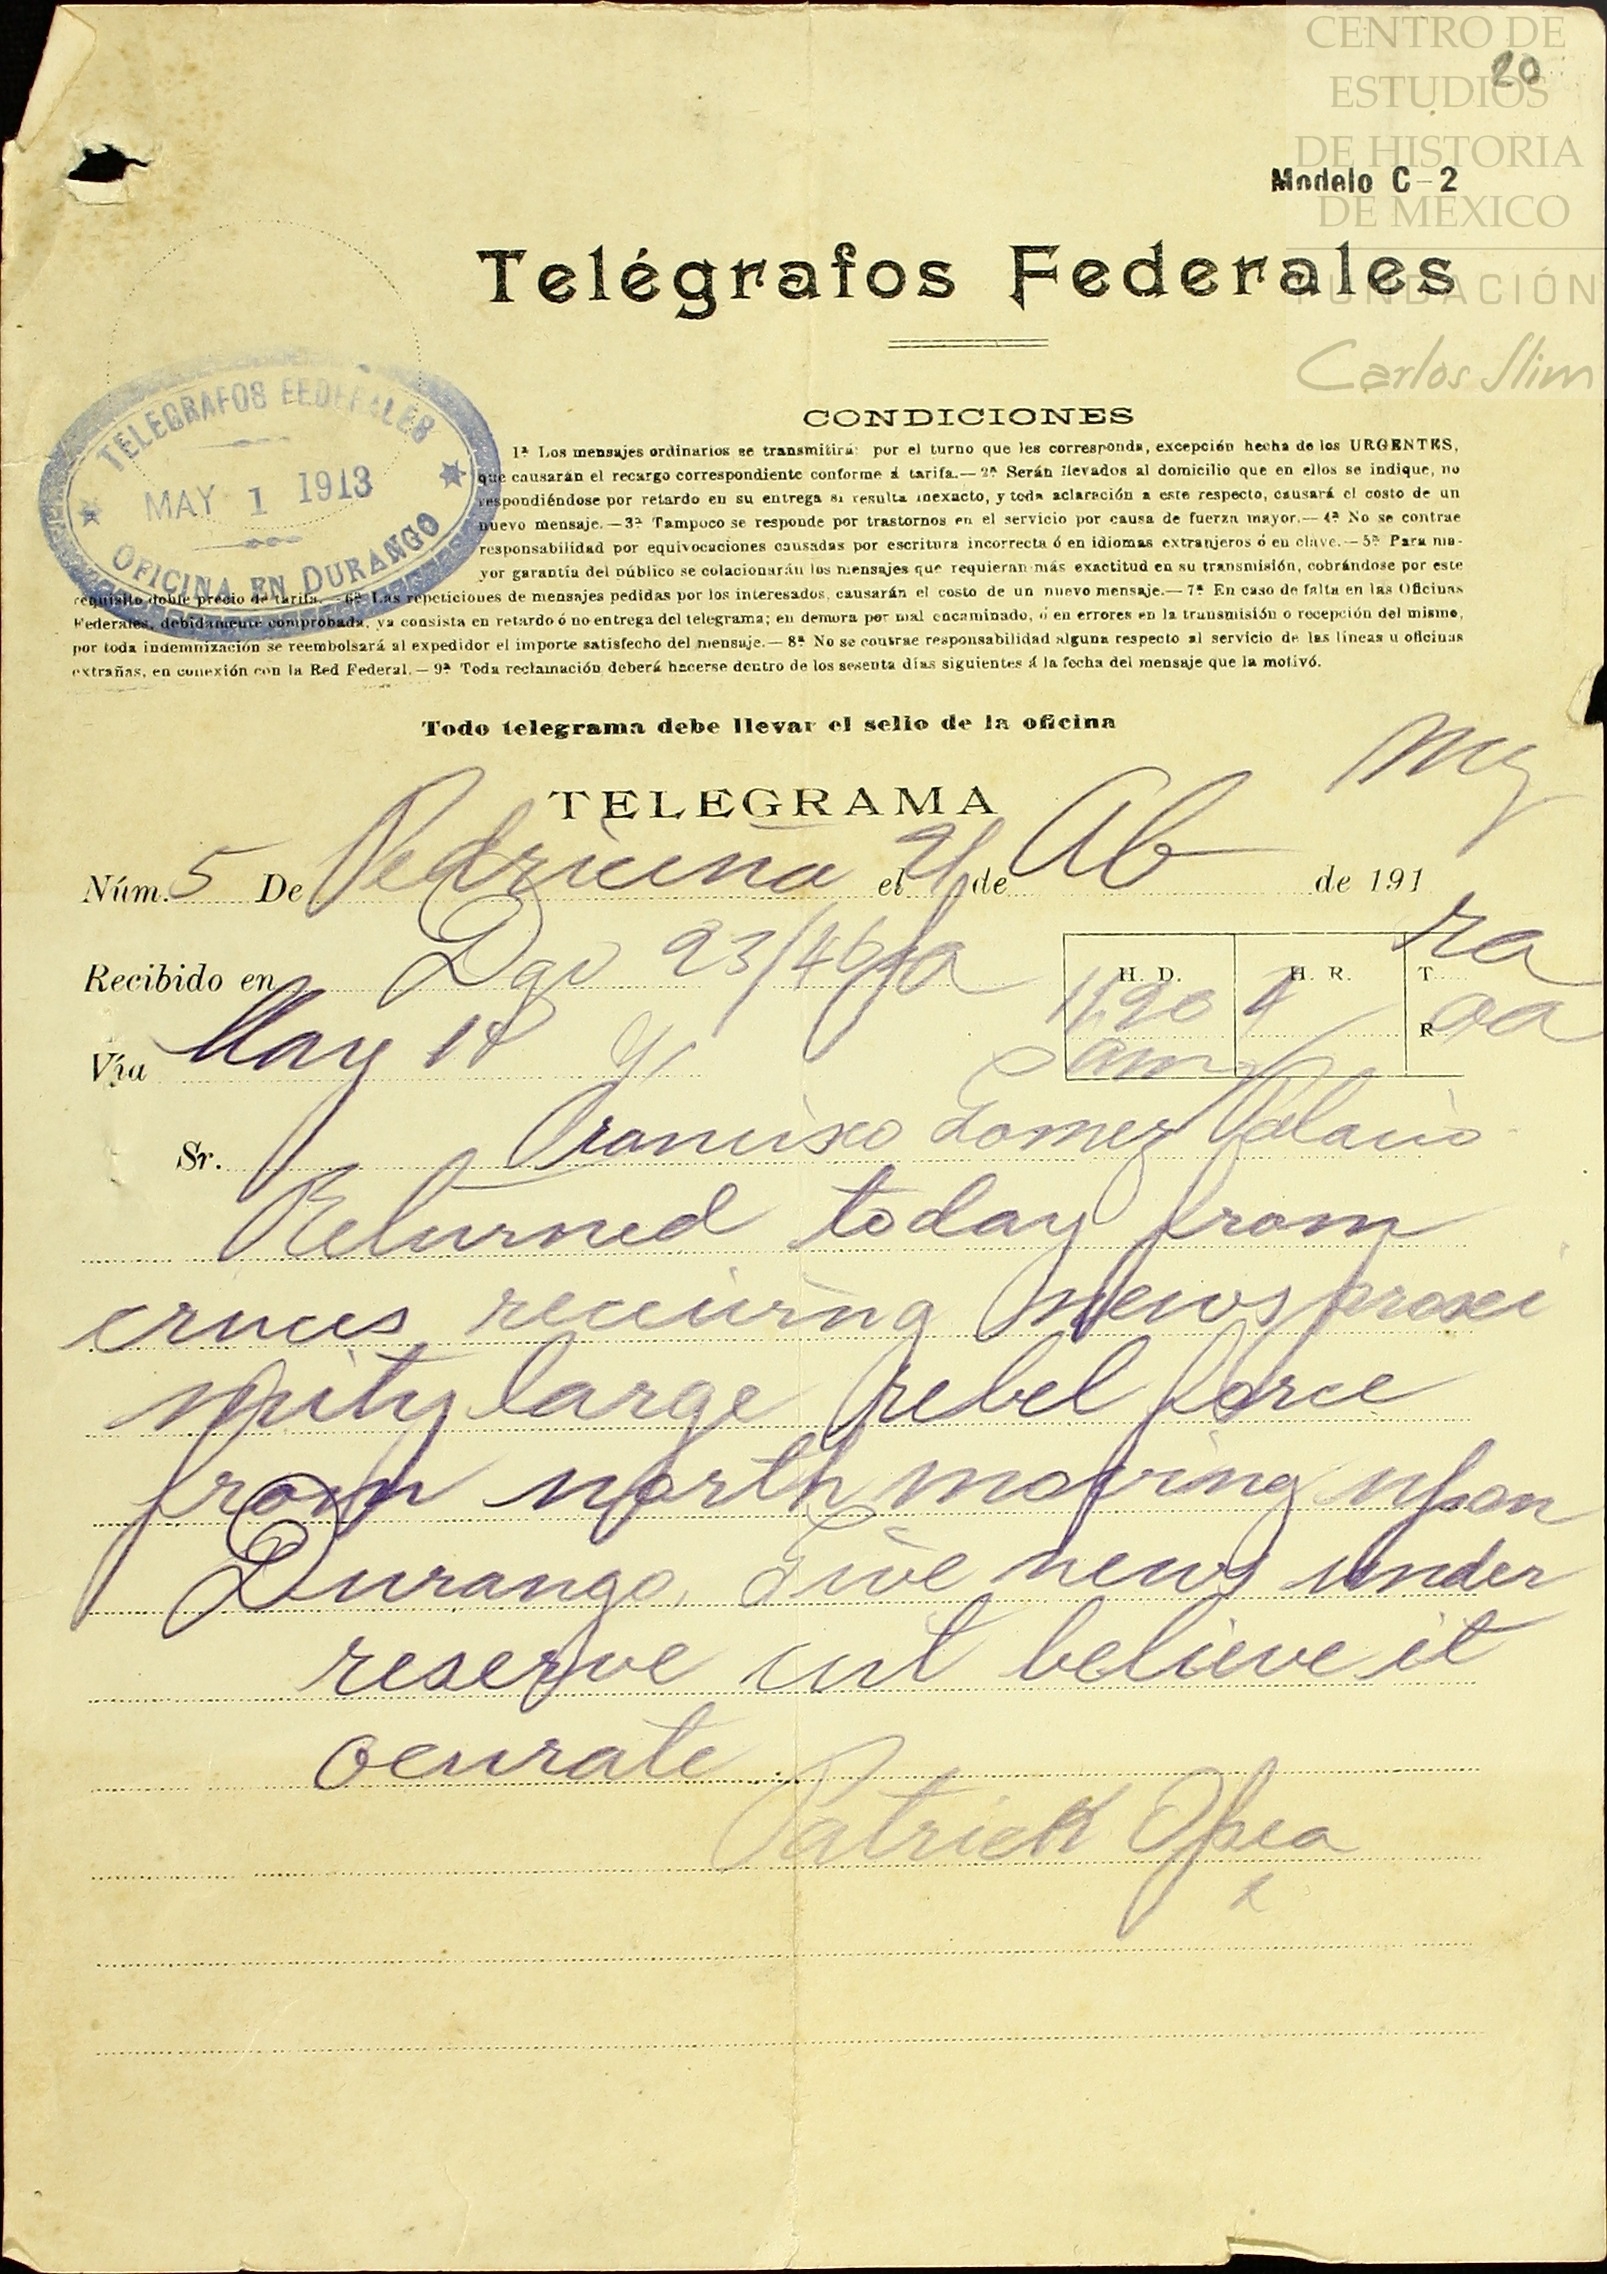 CENTRO DE
ESTUDIOS
DE HISTORIA
DE MÉXICO
FUNDACIÓN
Carlos Slim
20
Modelo C-2
Telégrafos Federales
TELEGRAFOS FEDERALES
MAY 1 1913
OFICINA EN DURANGO
CONDICIONES
1ª Los mensajes ordinarios se transmitirá por el turno que les corresponda, excepción hecha de los URGENTES,
que causarán el recargo correspondiente conforme á tarifa.—2ª Serán llevados al domicilio que en ellos se indique, no
respondiéndose por retardo en su entrega si resulta inexacto, y toda aclaración a este respecto, causará el costo de un
nuevo mensaje.—3ª Tampoco se responde por trastornos en el servicio por causa de fuerza mayor.—4ª No se contrae
responsabilidad por equivocaciones causadas por escritura incorrecta ó en idiomas extranjeros ó en clave.—5ª Para ma-
yor garantía del público se colacionarán los mensajes que requieran más exactitud en su transmisión, cobrándose por este
requisito doble precio de tarifa.—6ª Las repeticiones de mensajes pedidas por los interesados, causarán el costo de un nuevo mensaje.—7ª En caso de falta en las Oficinas
Federales, debidamente comprobada, ya consista en retardo ó no entrega del telegrama; en demora por mal encaminado, ó en errores en la transmisión o recepción del mismo,
por toda indemnización se reembolsará al expedidor el importe satisfecho del mensaje.—8ª No se contrae responsabilidad alguna respecto al servicio de las líneas u oficinas
extrañas, en conexión con la Red Federal.—9ª Toda reclamación deberá hacerse dentro de los sesenta días siguientes á la fecha del mensaje que la motivó.
Todo telegrama debe llevar el sello de la oficina
TELEGRAMA
Núm. 5 De Pedricena el de Ab de 191
Recibido en Dgo 23/46
H. D. H. R. T
Vía May 1º R
Sr. Francisco Gomez Palacio
Returned today from
cruces receiving news proxi
mity large rebel force
from north moving upon
Durango. Give news under
reserve cut believe it
ocurate
Patrick Oþea